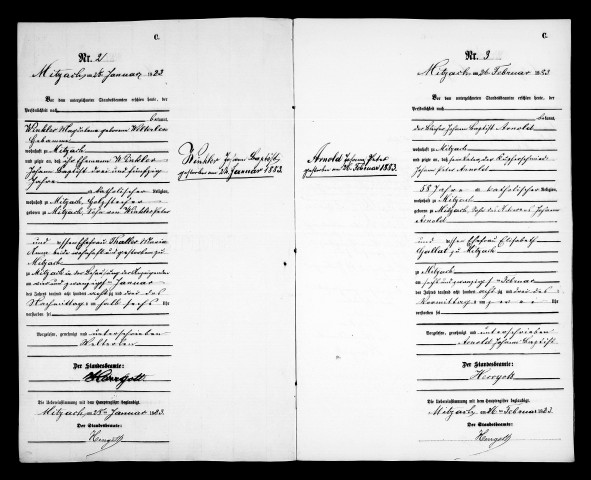 C.
Nr. 2
Mitzach, am 25. Januar 1883
Vor dem unterzeichneten Standesbeamten erschien heute, der
Persönlichkeit nach
bekannt,
Winkler Magdalena geborene Welterlen
Hebamme
wohnhaft zu Mitzach
und zeigte an, daß ihr Ehemann Winkler
Johann Baptist drei und fünfzig
Jahre
katholischer Religion,
wohnhaft zu Mitzach
geboren zu Mitzach, Sohn von Winkler Peter
und Ehefrau Thaller Maria
Anna beide wohnhaft und gestorben zu
Mitzach
zu Mitzach in der Behausung der Anzeigenden
am vier und zwanzigsten Januar
des Jahres tausend acht hundert achtzig und drei des
Nachmittags um halb sechs Uhr
verstorben sei
Vorgelesen, genehmigt und unterschrieben
Welterlen
Der Standesbeamte:
Herrgott
Die Uebereinstimmung mit dem Hauptregister beglaubigt.
Mitzach, am 25ten Januar 1883.
Der Standesbeamte:
Herrgott
Winkler Johann Baptist,
gestorben am 24. Januar 1883.
C.
Nr. 3
Mitzach, am 26. Februar 1883
Vor dem unterzeichneten Standesbeamten erschien heute, der
Persönlichkeit nach
bekannt,
Johann Baptist Arnold
wohnhaft zu Mitzach
und zeigte an, daß
Johann Peter Arnold
58 Jahre katholischer Religion,
wohnhaft zu Mitzach
geboren zu Mitzach, Sohn des Johann
Arnold
und Ehefrau Elisabeth
Gallat zu Mitzach
zu Mitzach
am sechs und zwanzigsten Februar
des Jahres tausend acht hundert achtzig und drei des
Vormittags um Uhr
verstorben sei
Vorgelesen, genehmigt und unterschrieben
Arnold Johann Baptist
Der Standesbeamte:
Herrgott
Die Uebereinstimmung mit dem Hauptregister beglaubigt.
Mitzach, am 26ten Februar 1883.
Der Standesbeamte:
Herrgott
Arnold Johann Peter
gestorben am 26. Februar 1883.